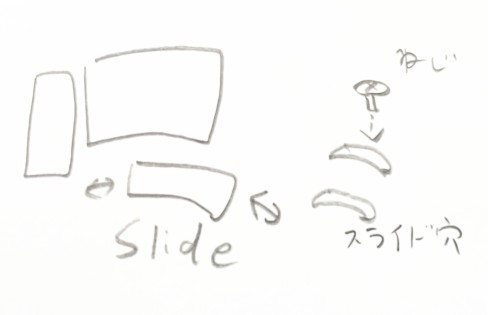 ねじ
Slide
スライド穴